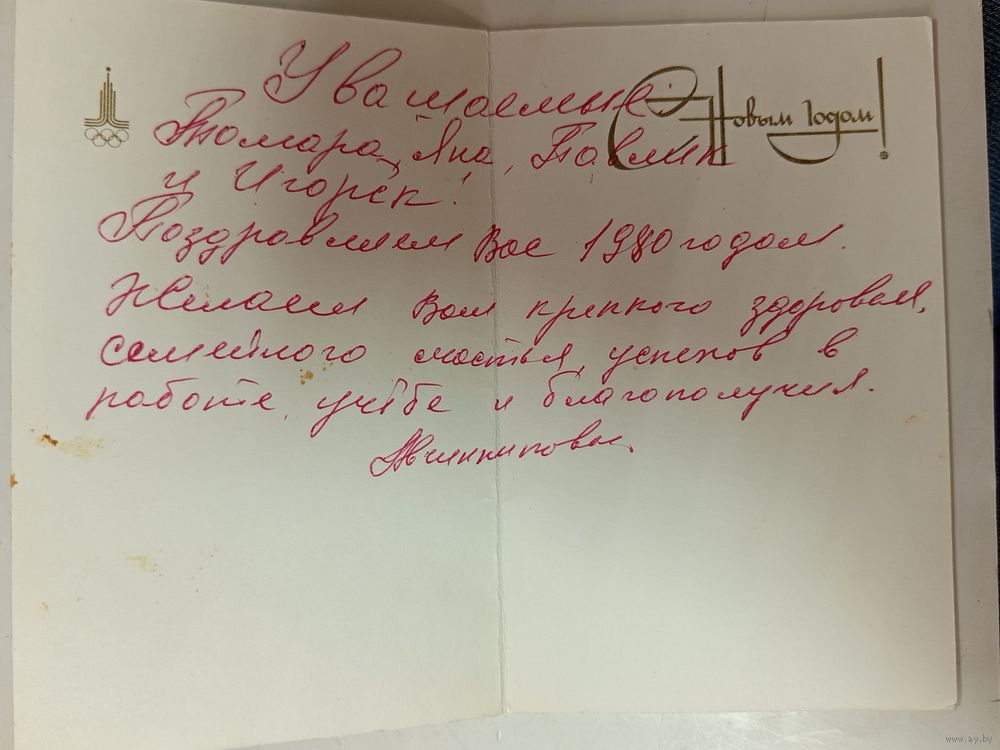 С Новым годом!
Уважаемые
Тамара, Яна, Павлик
и Игорёк!
Поздравляем Вас 1980 годом.
Желаем Вам крепкого здоровья,
семейного счастья, успехов в
работе, учёбе и благополучия.
www.ay.by